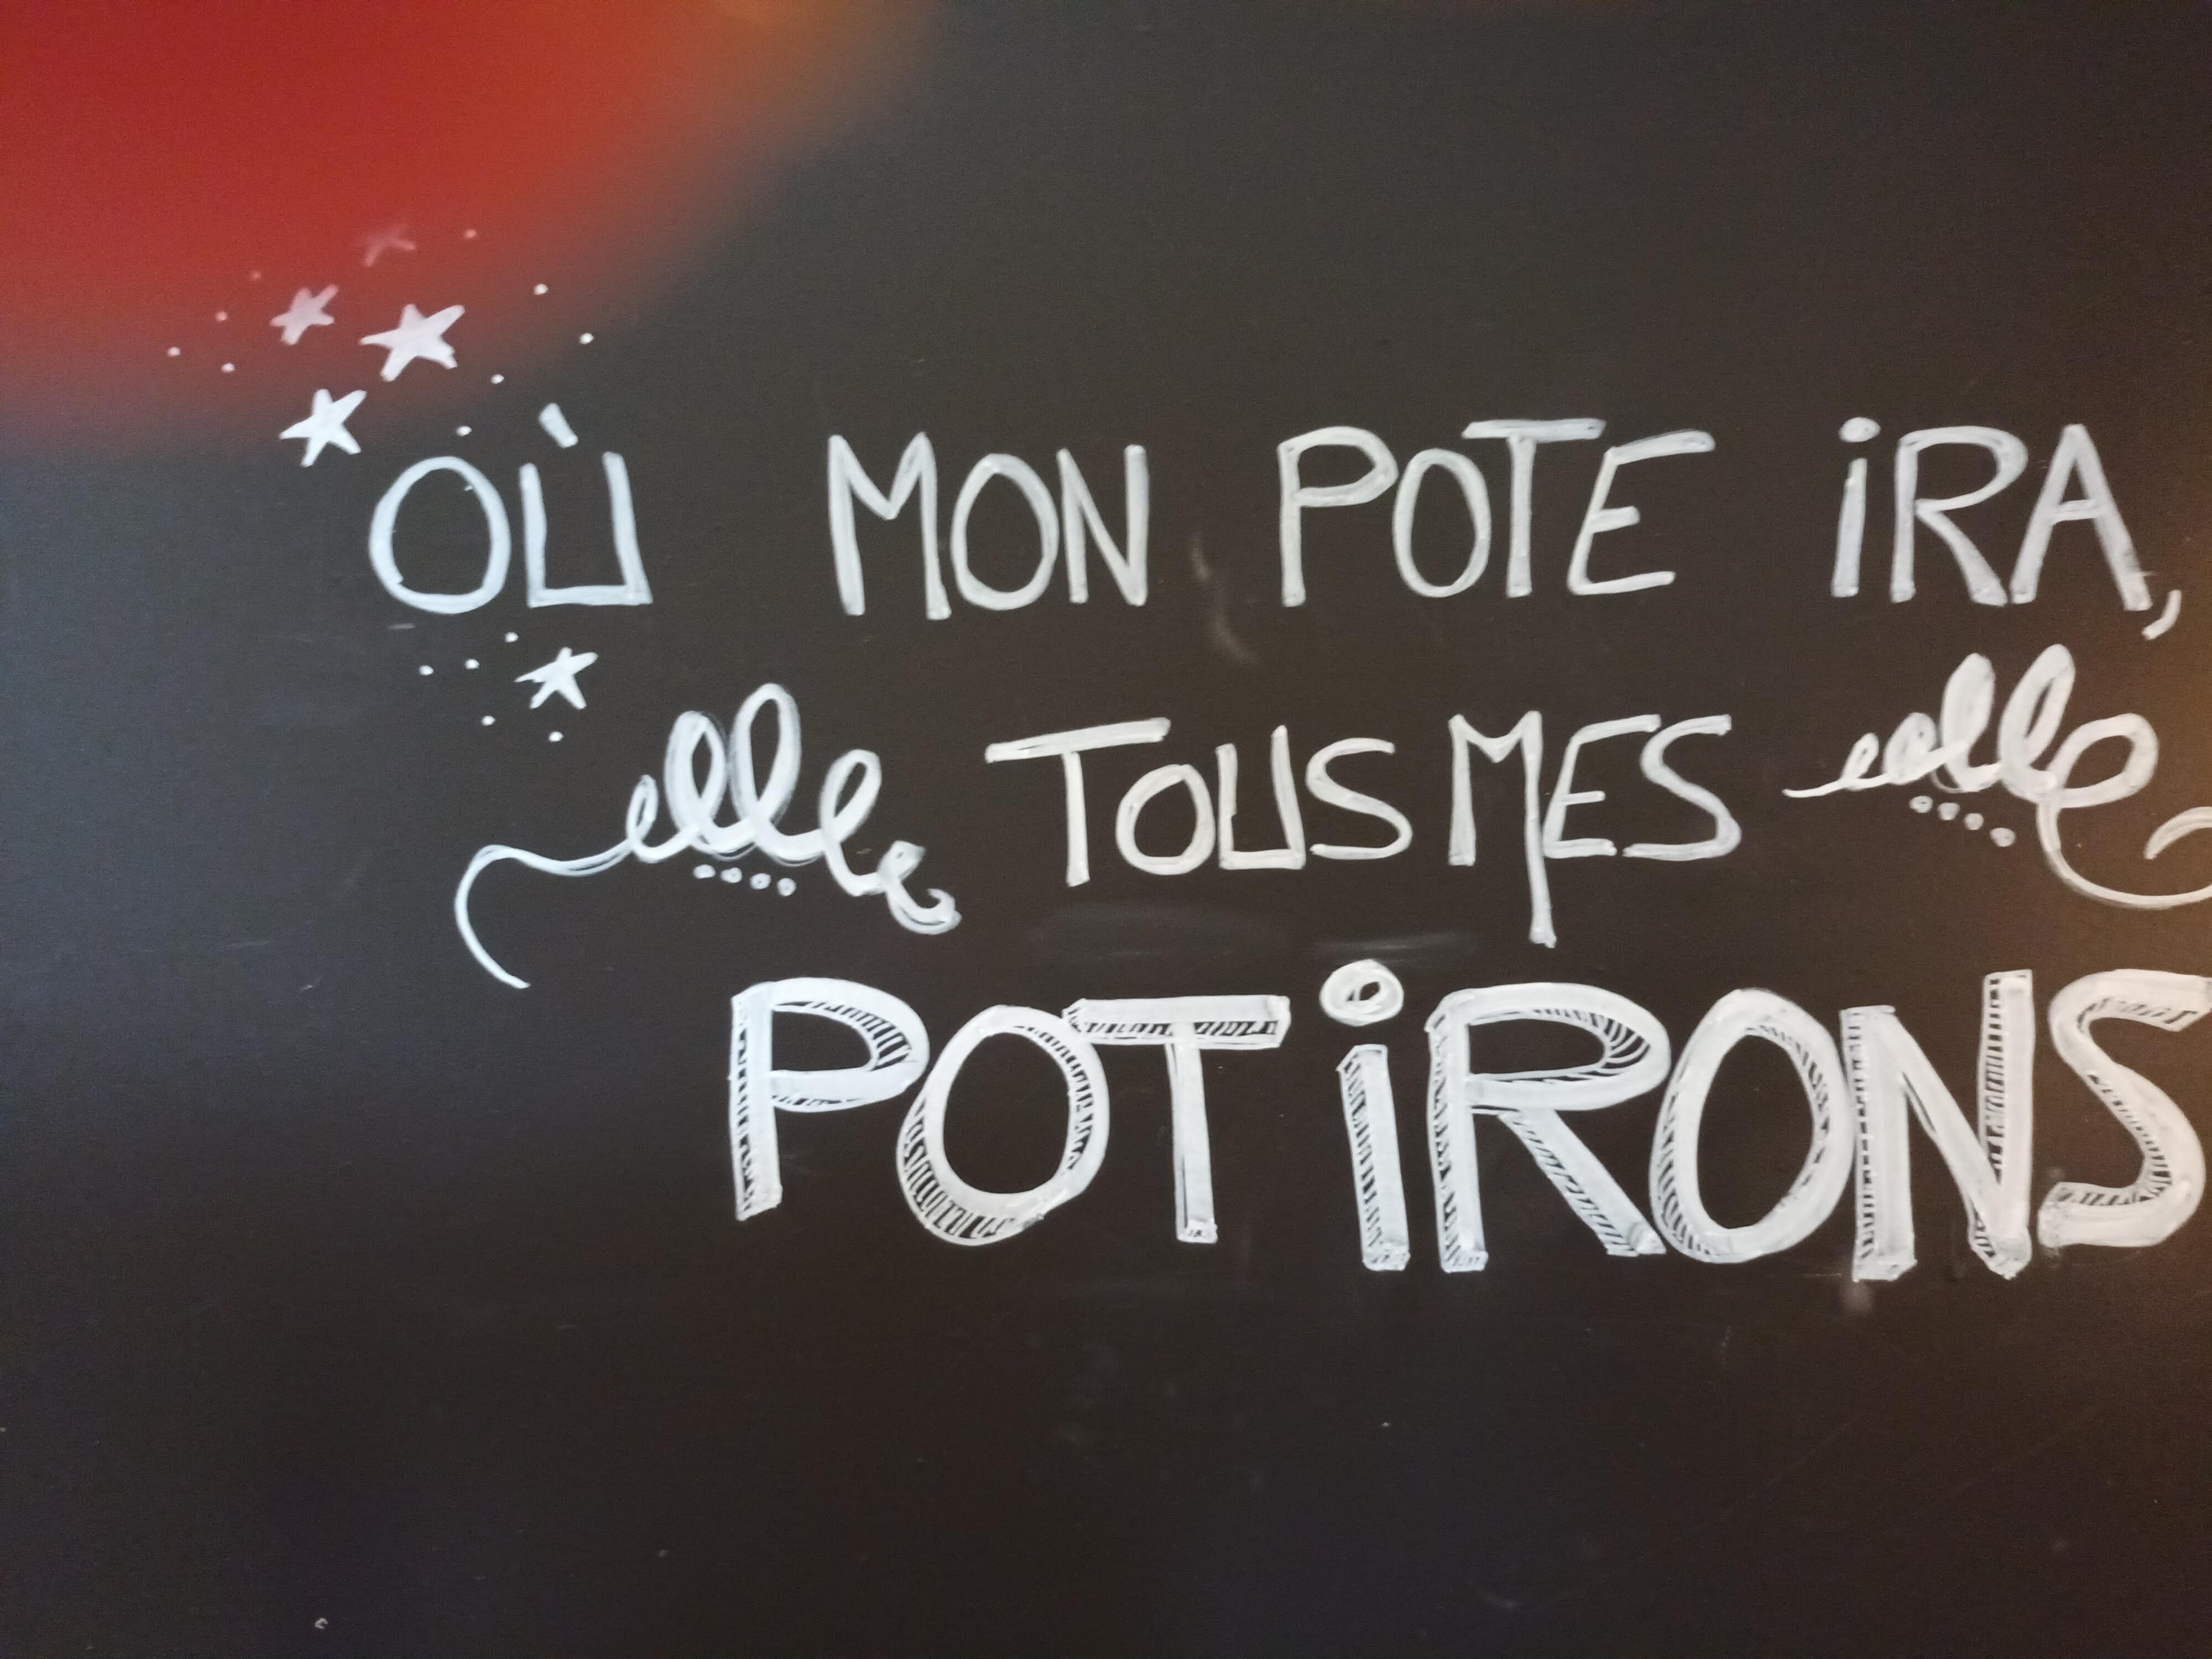 OÙ MON POTE iRA,
TOUS MES
POTiRONS